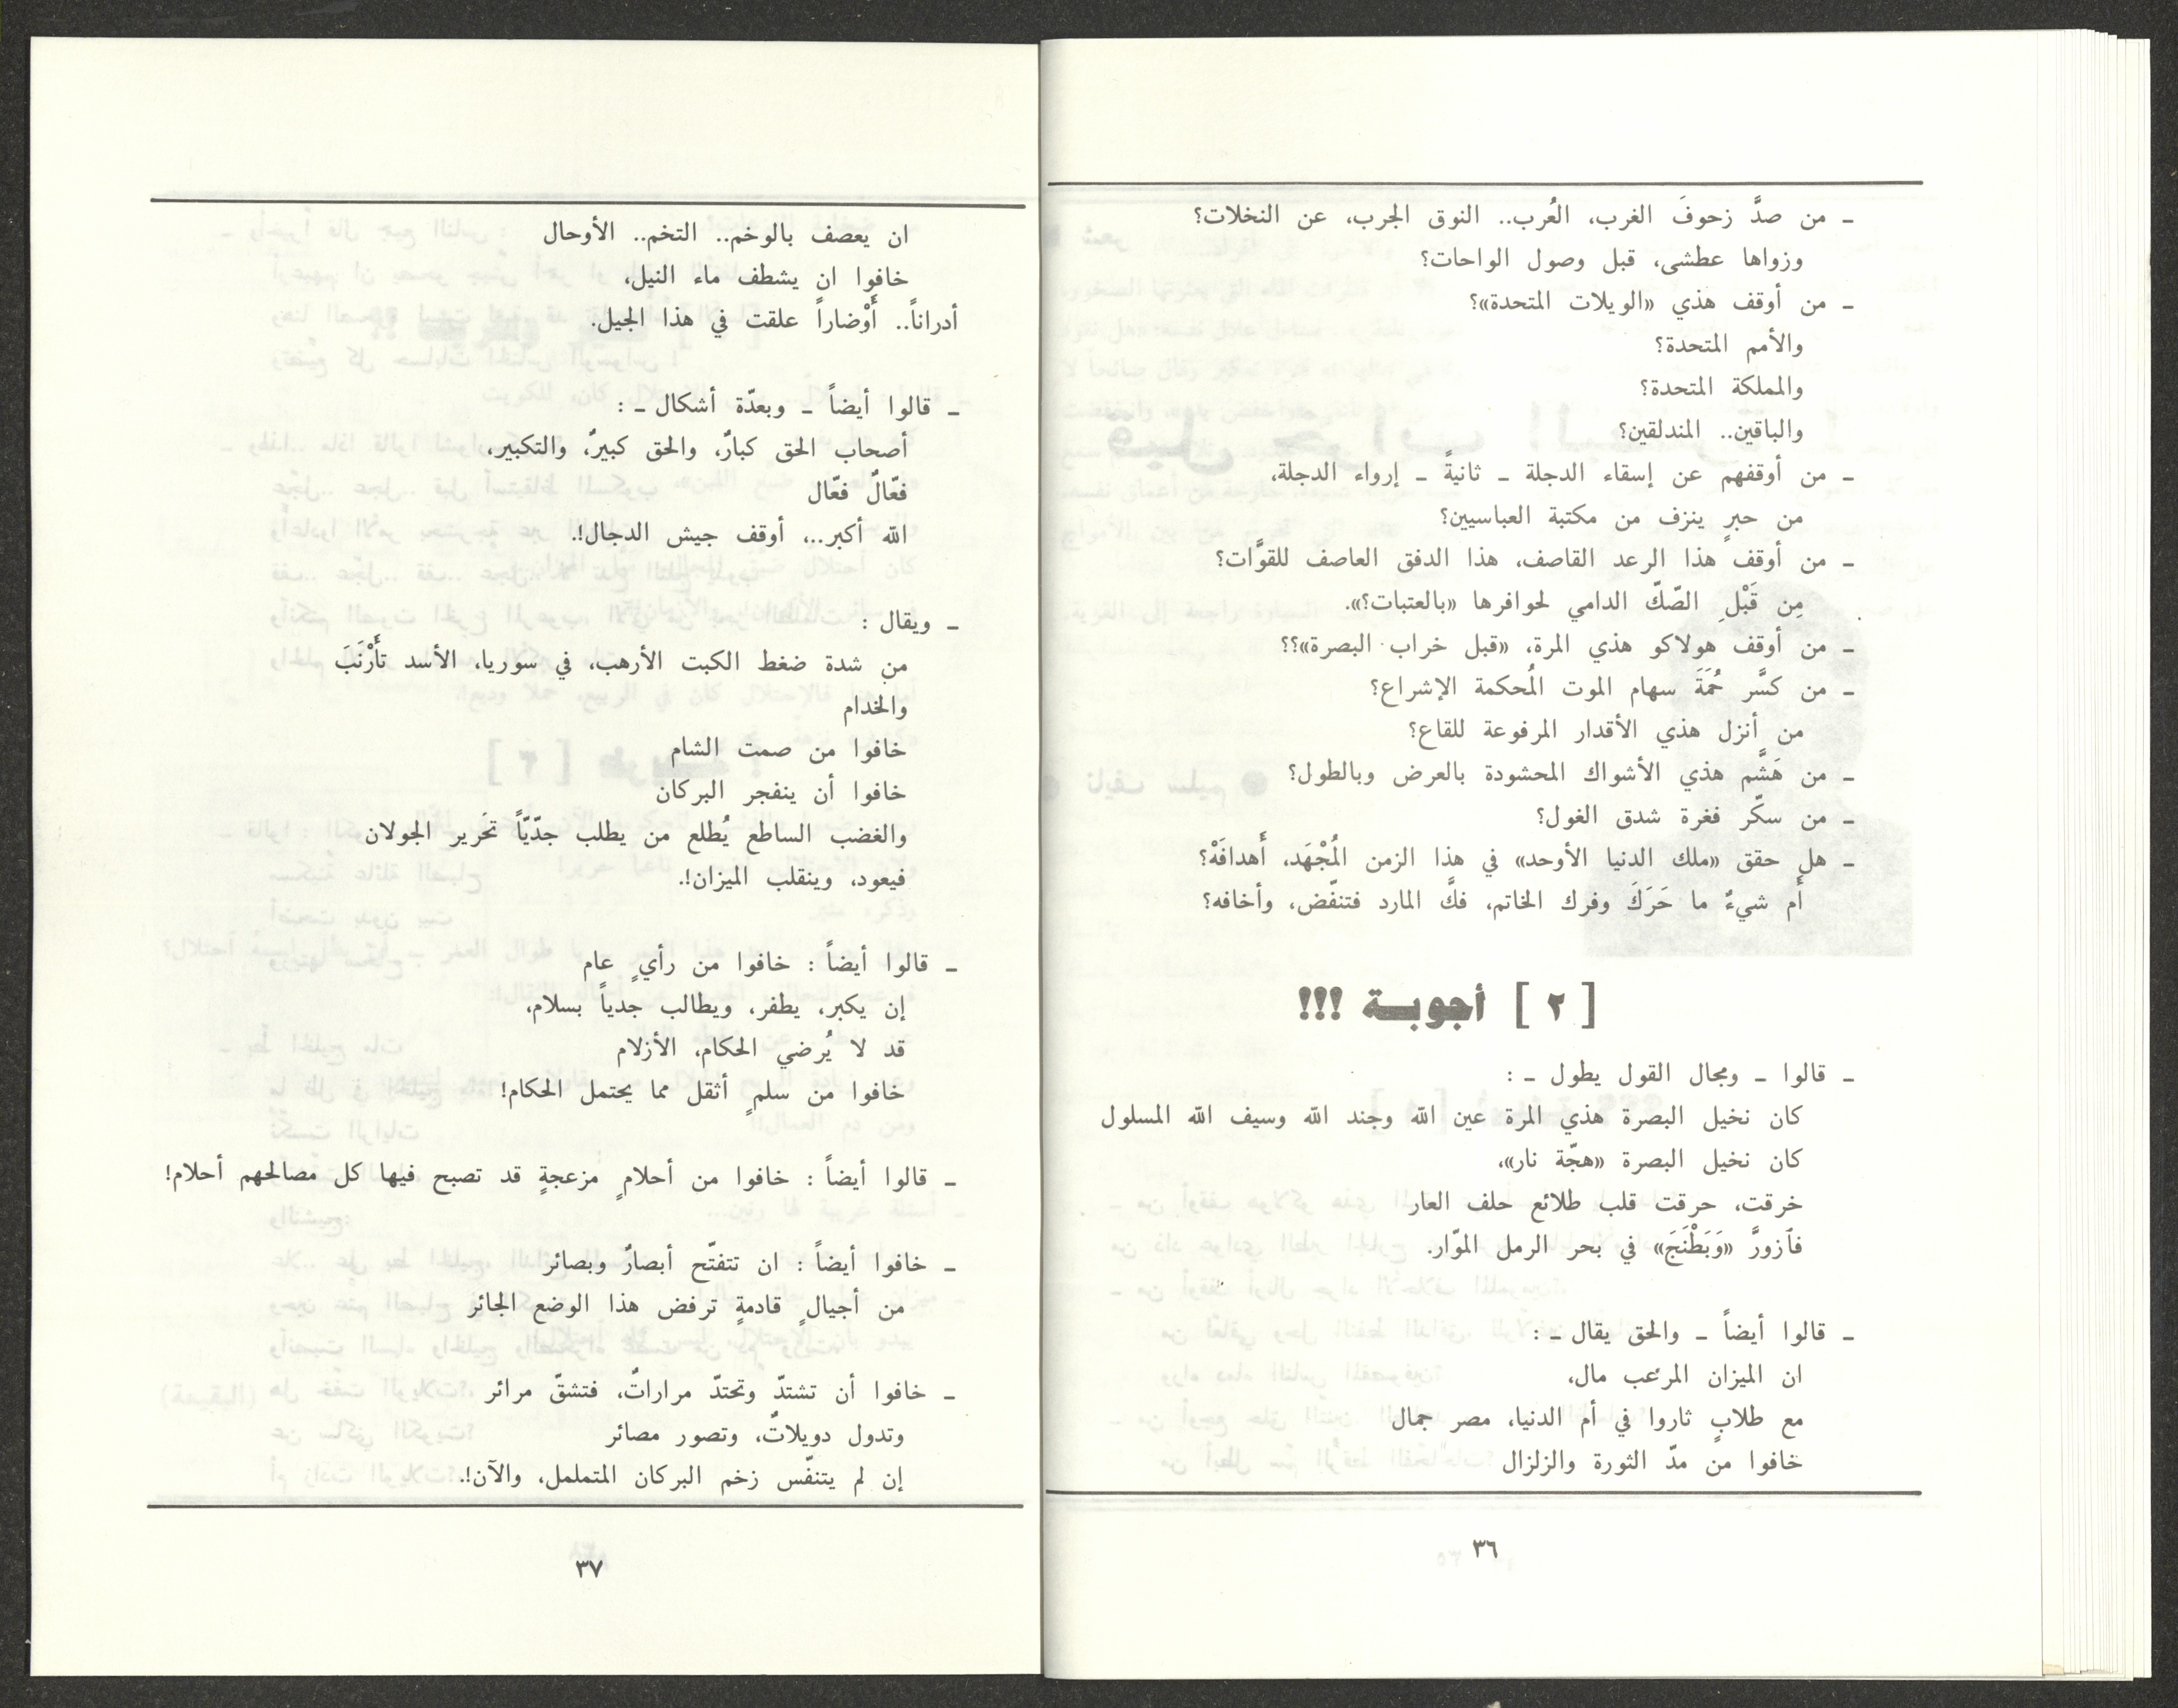 ـ من صدَّ زحوفَ الغرب، العُرب.. النوق الجرب، عن النخلات؟
وزواها عطشى، قبل وصول الواحات؟
ـ من أوقف هذي «الويلات المتحدة»؟
والأمم المتحدة؟
والمملكة المتحدة؟
والباقين.. المندلقين؟
ـ من أوقفهم عن إسقاء الدجلة ـ ثانيةً ـ إرواء الدجلة،
من حبرٍ ينزف من مكتبة العباسيين؟
ـ من أوقف هذا الرعد القاصف، هذا الدفق العاصف للقوَّات؟
مِن قَبْلِ الصّكّ الدامي لحوافرها «بالعتبات؟».
ـ من أوقف هولاكو هذي المرة، «قبل خراب البصرة»؟؟
ـ من كسَّر حُمَةَ سهام الموت المُحكمة الإشراع؟
من أنزل هذي الأقدار المرفوعة للقاع؟
ـ من هَشَّم هذي الأشواك المحشودة بالعرض وبالطول؟
ـ من سكّر فغرة شدق الغول؟
ـ هل حقق «ملك الدنيا الأوحد» في هذا الزمن المُجْهَد، أَهدافَهْ؟
أَم شيءٌ ما حَرَكَ وفرك الخاتم، فكَّ المارد فتنفّض، وأخافه؟
[ ٢ ] أجوبـة !!!
ـ قالوا ـ ومجال القول يطول ـ :
كان نخيل البصرة هذي المرة عين الله وجند الله وسيف الله المسلول
كان نخيل البصرة «هجّة نار»،
خرقت، حرقت قلب طلائع حلف العار
فٱزورَّ «وَبَطْنَجَ» في بحر الرمل الموّار.
ـ قالوا أيضاً ـ والحق يقال ـ :
ان الميزان المرعب مال،
مع طلابٍ ثاروا في أم الدنيا، مصر جمال
خافوا من مدّ الثورة والزلزال
٣٦
ان يعصف بالوخم.. التخم.. الأوحال
خافوا ان يشطف ماء النيل،
أدراناً.. أَوْضاراً علقت في هذا الجيل.
ـ قالوا أيضاً ـ وبعدّة أشكال ـ :
أصحاب الحق كبارٌ، والحق كبيرٌ، والتكبير،
فعّالٌ فعّال
الله أكبر..، أوقف جيش الدجال!.
ـ ويقال :
من شدة ضغط الكبت الأرهب، في سوريا، الأسد تأَرْنَبَ
والخدام
خافوا من صمت الشام
خافوا أن ينفجر البركان
والغضب الساطع يُطلع من يطلب جدّيّاً تحَرير الجولان
فيعود، وينقلب الميزان!.
ـ قالوا أيضاً : خافوا من رأيٍ عام
إن يكبر، يطفر، ويطالب جدياً بسلام،
قد لا يُرضي الحكام، الأزلام
خافوا من سلمٍ أثقل مما يحتمل الحكام!
ـ قالوا أيضاً : خافوا من أحلامٍ مزعجةٍ قد تصبح فيها كل مصالحهم أحلام!
ـ خافوا أيضاً : ان تتفتّح أبصارٌ وبصائر
من أجيالٍ قادمةٍ ترفض هذا الوضع الجائر
ـ خافوا أن تشتدّ وتحتدّ مراراتٌ، فتشقّ مرائر
وتدول دويلاتٌ، وتصور مصائر
إن لم يتنفّس زخم البركان المتململ، والآن!.
٣٧